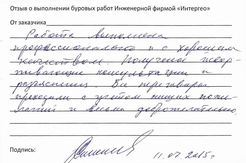 Отзыв о выполнении буровых работ Инженерной фирмой «Интергео»
От заказчика
Работа выполнена
профессионально и с хорошим
качеством. Получены исчер-
пывающие консультации и
разъяснения. Все переговоры
проходили с учётом наших поже-
ланий и весьма доброжелательно.
Подпись:
11.07.2015г.